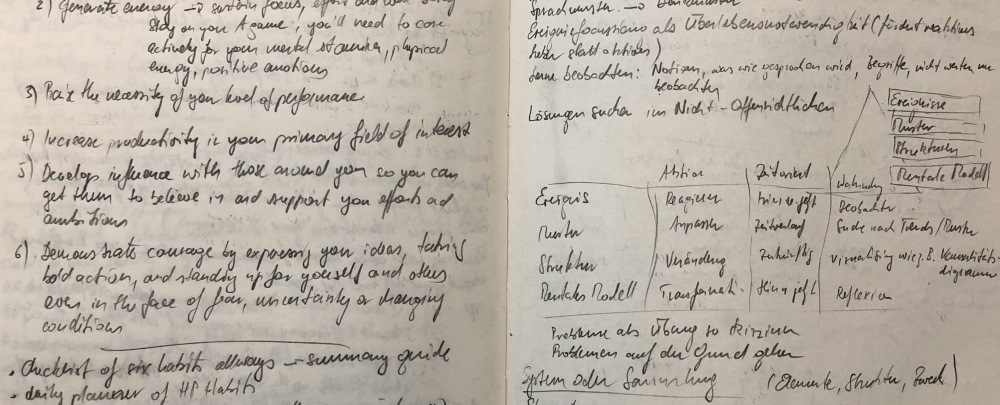 2) Generate energy → sustain focus, effort and well being
stay on your A game, you'll need to care
actively for your mental stamina, physical
energy, positive emotions
3) Raise the necessity of your level of performance
4) Increase productivity in your primary field of interest
5) Develop influence with those around you so you can
get them to believe in and support you efforts ad
ambitions
6) Demonstrate courage by expressing you ideas, taking
bold action, and standing up for yourself and others
even in the face of fear, uncertainty or changing
conditions
• Checklist of six habits allways → summary guide
• daily planner of HP Habits
Sprachmuster →
Ereignisfocussierung als Überlebensnotwendigkeit (fördert reaktions
statt aktions)
beobachten: Notieren, was wie gesprochen wird, Begriffe, nicht werten nur
beobachten
Lösungen suchen im Nicht-Offensichtlichen
Ereignisse
Muster
Strukturen
Mentale Modell
Aktion Zeitorient Wahrnehmung
Ereignis Reagieren hier + jetzt Beobachter
Muster Anpassen Zeitverlauf Suche nach Trends/Muster
Struktur Veränderung Zukünftig visualisieng wie z.B. Kausalitäts-
diagramm
Mentales Modell Transformati- hier + jetzt Reflexion
Probleme als Übung zu skizzieren
Problemen auf den Grund gehen
System oder Sammlung (Elemente, Struktur, Zweck)